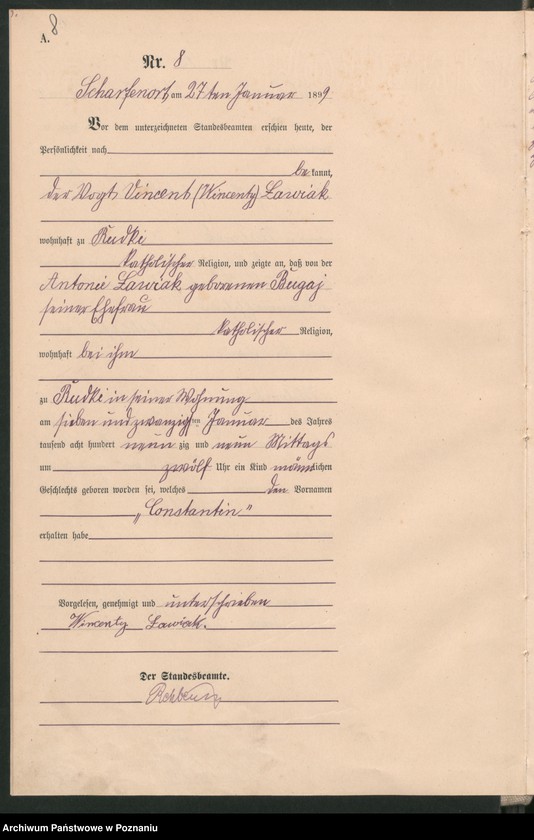 8
A.
Nr. 8
Scharfenort, am 27ten Januar 1899
Vor dem unterzeichneten Standesbeamten erschien heute, der
Persönlichkeit nach
bekannt,
der Vogt Vincent (Wincenty) Ławiak
wohnhaft zu Rudki
katholischer Religion, und zeigte an, daß von der
Antonie Ławiak geborenen Bugaj
seiner Ehefrau
katholischer Religion,
wohnhaft bei ihm
zu Rudki in seiner Wohnung
am sieben und zwanzigten Januar des Jahres
tausend acht hundert neunzig und neun Mittags
um zwölf Uhr ein Kind männlichen
Geschlechts geboren worden sei, welches den Vornamen
„Constantin"
erhalten habe
Vorgelesen, genehmigt und unterschrieben
Wincenty Ławiak.
Der Standesbeamte.
Archiwum Państwowe w Poznaniu